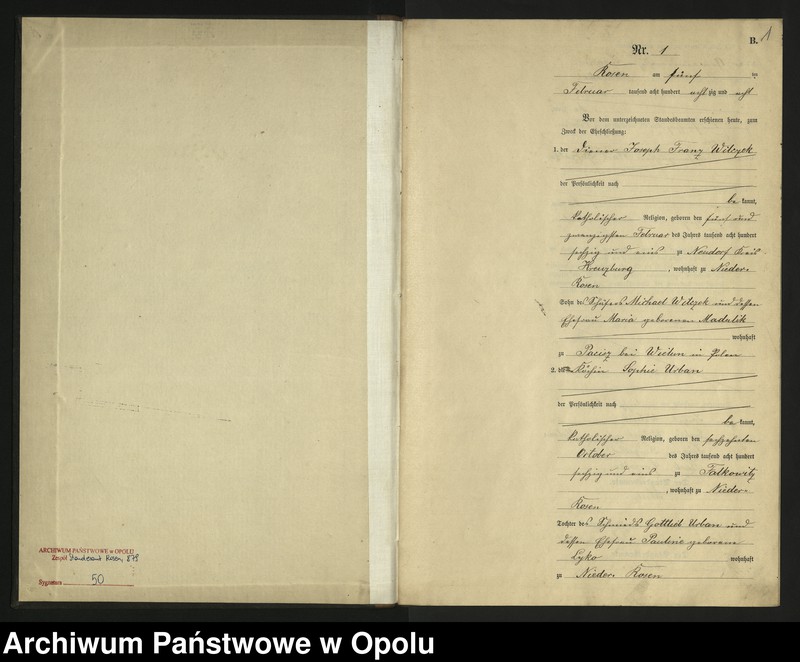 ARCHIWUM PAŃSTWOWE w OPOLU
Zespół Standesamt Rosen, 879
Sygnatura 50
B. 1
Nr. 1
Rosen am fünf ten
Februar tausend acht hundert achtzig und acht
Vor dem unterzeichneten Standesbeamten erschienen heute, zum
Zweck der Eheschließung:
1. der Diener Joseph Franz Witczok
der Persönlichkeit nach
be kannt,
katholischer Religion, geboren den fünf und
zwanzigsten Februar des Jahres tausend acht hundert
sechzig und eins zu Neudorf Kreis
Kreuzburg, wohnhaft zu Nieder-
Rosen
Sohn des Schäfers Michael Witczok und dessen
Ehefrau Maria geborenen Madalik
wohnhaft
zu bei Wielun in Polen
2. die Köchin Sophie Urban
der Persönlichkeit nach
be kannt,
katholischer Religion, geboren den sechzehnten
October des Jahres tausend acht hundert
sechzig und eins zu Falkowitz
, wohnhaft zu Nieder-
Rosen
Tochter des Schmieds Gottlieb Urban und
dessen Ehefrau Pauline geborene
Lyko wohnhaft
zu Nieder-Rosen
Archiwum Państwowe w Opolu